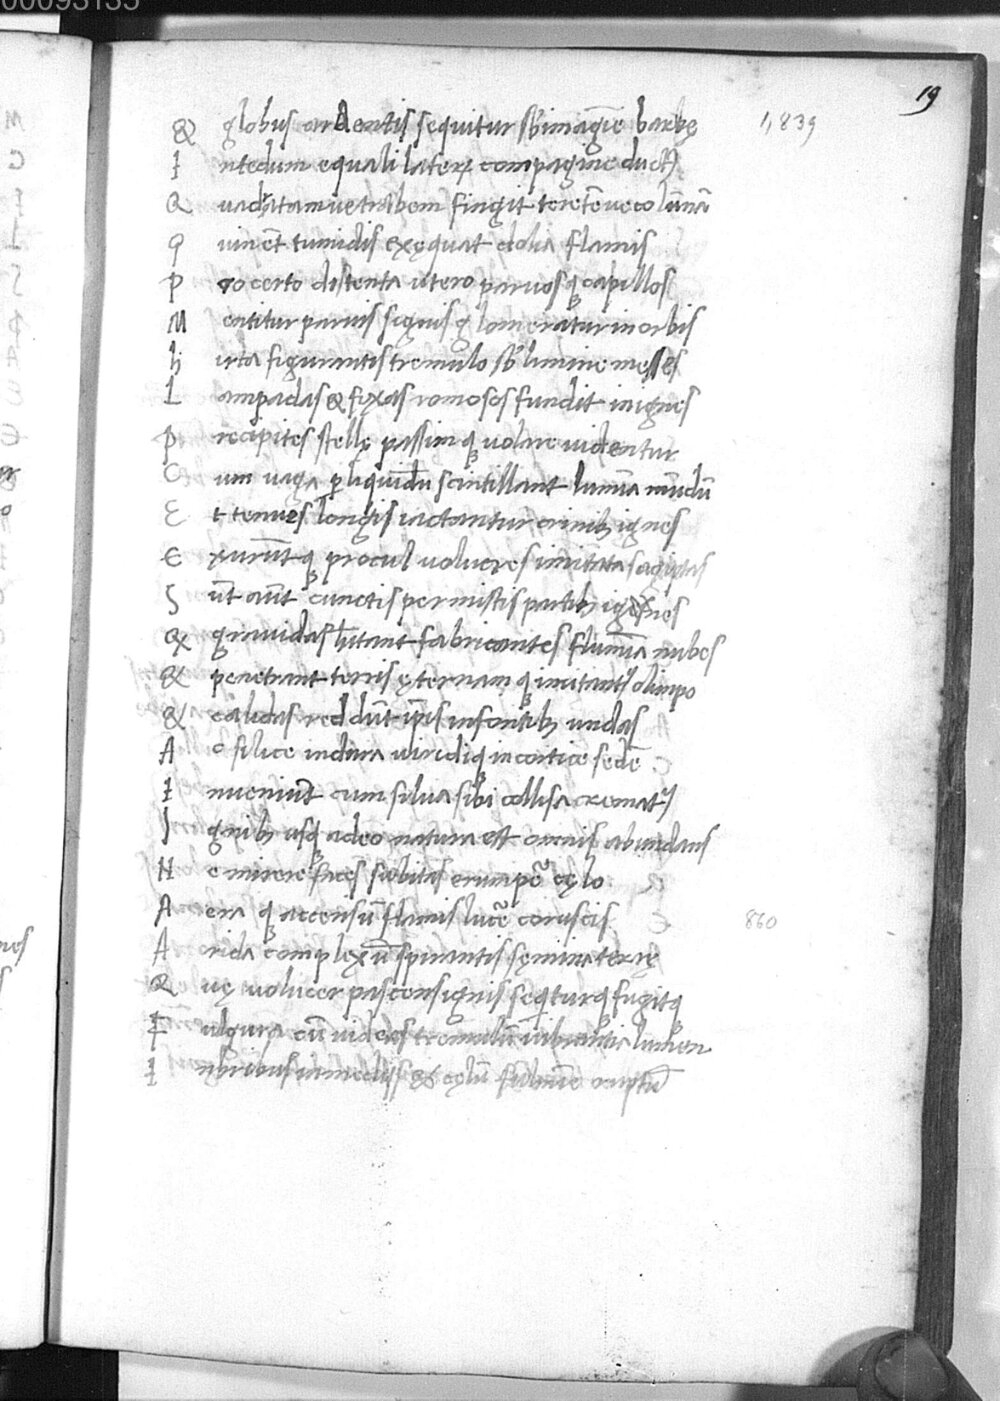 00093135
19
& globus ardentis sequitur sb imagīe barbę 1,839
I nterdum equali laterꝝ compagine ductꝰ
Q uadratamue trabem fingit teretēue colūnā
Q uin ēt tumidis exęquat dolia flamis
P rocerto distenta utero paruosqꝫ capillos
M entitur paruis signis glomeratur in orbis
h irta figurantis tremulo sb lumine messes
L ampadas & fixas ramosos fundit in ignes
P recipites stellę passimqꝫ uolare uidentur
C um uaga ꝑ liquidū scintillant lumīa mūdū
E t tenues longis iactantur crinibꝫ ignes
E xurūtqꝫ procul uolucres imitata sagiptas
S ūt aūt cunctis permistis partibꝫ ignes
Q grauidas hītant fabricantes flumīa nubes
& penetrant terris ęternamqꝫ imitantᵗ olimpo
& calidas reddūt ip̄is in fontibꝫ undas
A c silice in dura uiridiqꝫ in cortice sedē
I nueniūt cum silua sibi collisa crematᵗ
I gnibꝫ usqꝫ adeo natura est omnis abundans
N e mirere faces subitas erumpē cęlo
A eraqꝫ accensū flamis lucē coruscis 860
A rida complexū spirantis sęmina terrę
Q uę uolucer pascens ignis seqiturqꝫ fugitqꝫ
F ulgura cū uideas tremulū uibrantia lumen
I mbribus in mediis & cęlū fulmīe ruptū